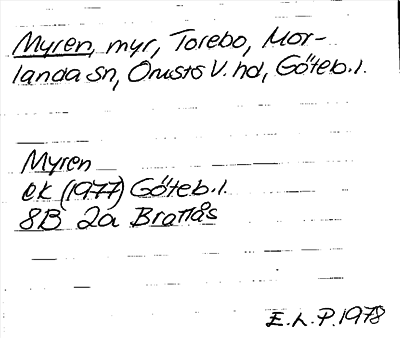 Myren, myr, Torebo, Mor-
landa sn, Orusts V. hd, Göteb.l.
Myren
ek (1977) Göteb.l.
8B 2a Brattås
E.L.P. 1978